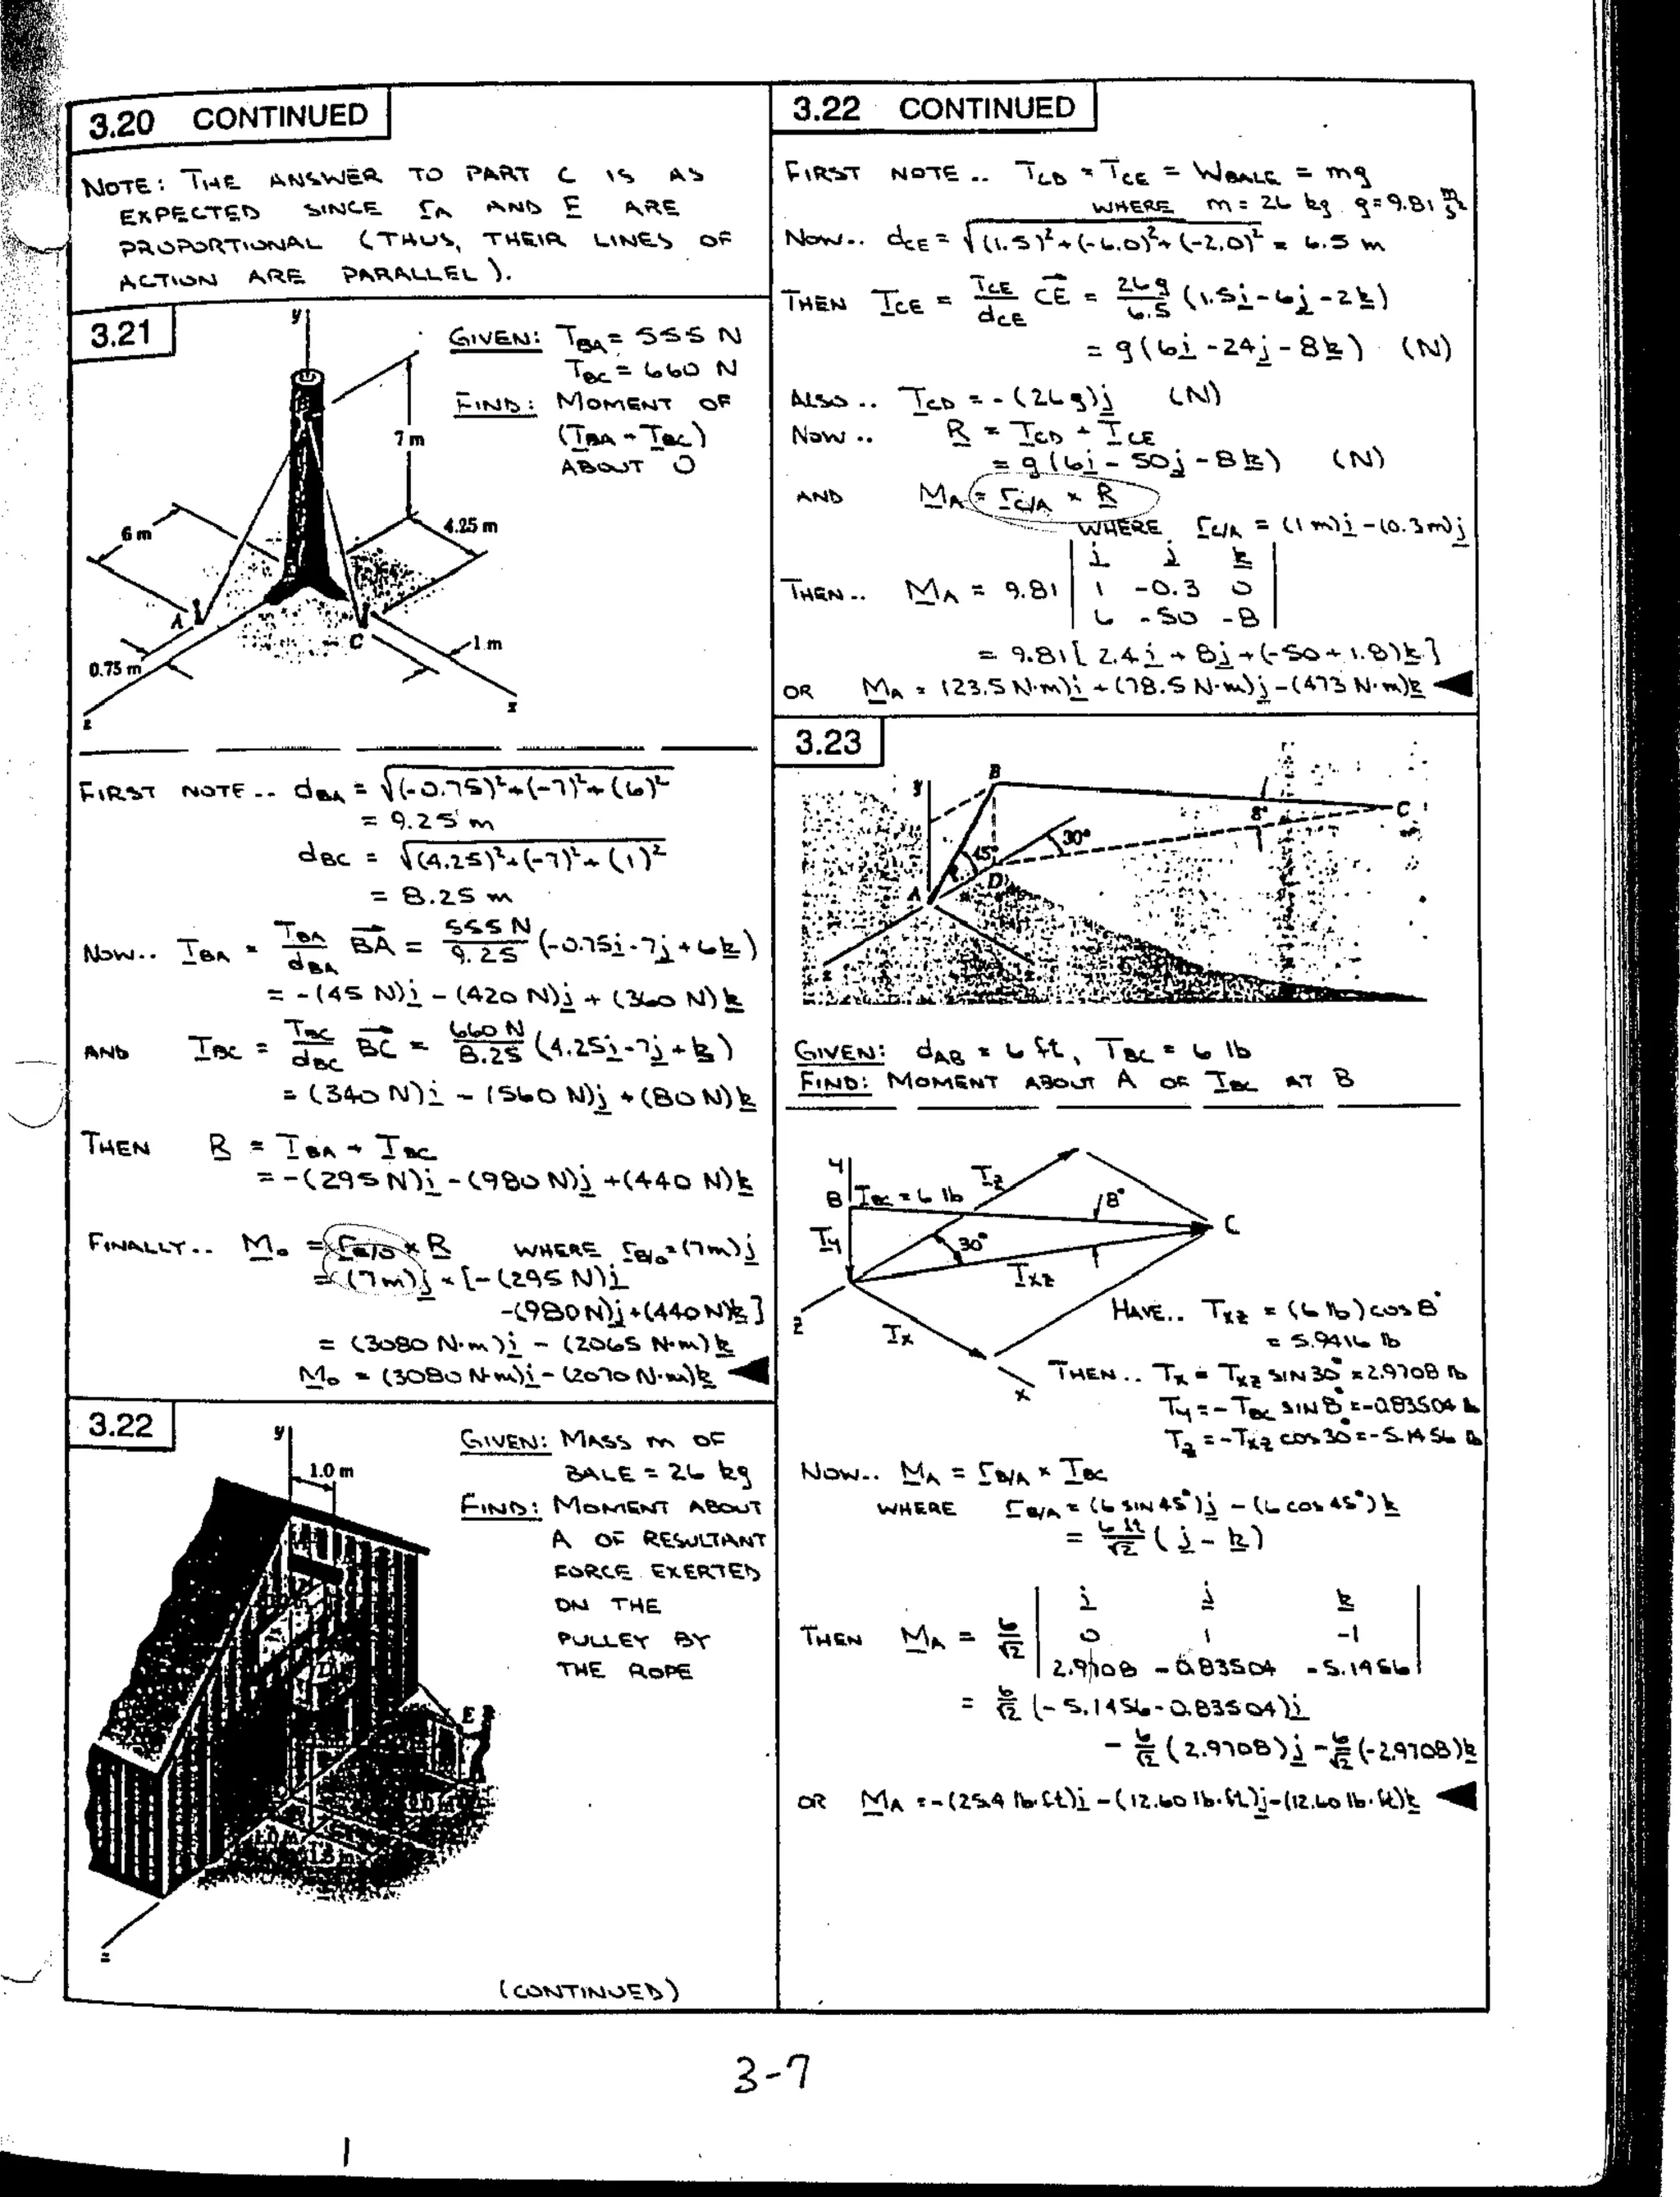 3.20 CONTINUED
NOTE: THE ANSWER TO PART C IS AS
EXPECTED SINCE r_A AND F ARE
PROPORTIONAL (THUS, THEIR LINES OF
ACTION ARE PARALLEL).
3.21
y
7 m
6 m
4.25 m
A
C
1 m
0.75 m
z
x
GIVEN: T_BA = 555 N
T_BC = 660 N
FIND: MOMENT OF
(T_BA + T_BC)
ABOUT O
FIRST NOTE.. d_BA = √(-0.75)²+(-7)²+(6)²
= 9.25 m
d_BC = √(4.25)²+(-7)²+(1)²
= 8.25 m
NOW.. T_BA = T_BA/d_BA BA = 555 N/9.25 (-0.75i-7j+6k)
= -(45 N)i - (420 N)j + (360 N)k
AND T_BC = T_BC/d_BC BC = 660 N/8.25 (4.25i-7j+k)
= (340 N)i - (560 N)j + (80 N)k
THEN R = T_BA + T_BC
= -(295 N)i - (980 N)j + (440 N)k
FINALLY.. M_O = r_B/O × R WHERE r_B/O = (7m)j
= (7m)j × [-(295 N)i
-(980N)j+(440N)k]
= (3080 N·m)i - (2065 N·m)k
M_O = (3080 N·m)i - (2070 N·m)k
3.22
y
1.0 m
E
z
GIVEN: MASS m OF
BALE = 26 kg
FIND: MOMENT ABOUT
A OF RESULTANT
FORCE EXERTED
ON THE
PULLEY BY
THE ROPE
(CONTINUED)
3.22 CONTINUED
FIRST NOTE.. T_CD = T_CE = W_BALE = mg
WHERE m = 26 kg g = 9.81 m/s²
NOW.. d_CE = √(1.5)²+(-6.0)²+(-2.0)² = 6.5 m
THEN T_CE = T_CE/d_CE CE = 26g/6.5 (1.5i-6j-2k)
= g(6i-24j-8k) (N)
ALSO.. T_CD = -(26g)j (N)
NOW.. R = T_CD + T_CE
= g(6i-50j-8k) (N)
AND M_A = r_C/A × R
WHERE r_C/A = (1m)i-(0.3m)j
THEN.. M_A = 9.81 | i j k |
| 1 -0.3 0 |
| 6 -50 -8 |
= 9.81[2.4i+8j+(-50+1.8)k]
OR M_A = (23.5 N·m)i + (78.5 N·m)j - (473 N·m)k
3.23
y
B
C
8°
30°
45°
A
D
GIVEN: d_AB = 6 ft, T_BC = 6 lb
FIND: MOMENT ABOUT A OF T_BC AT B
y
B
T_BC = 6 lb
T_z
8°
C
T_y
30°
T_xz
z
T_x
x
HAVE.. T_xz = (6 lb)cos8°
= 5.9416 lb
THEN.. T_x = T_xz SIN30° = 2.9708 lb
T_y = -T_BC SIN8° = -0.83504 lb
T_z = -T_xz COS30° = -5.1456 lb
NOW.. M_A = r_B/A × T_BC
WHERE r_B/A = (6 SIN45°)j - (6 COS45°)k
= 6 ft/√2 (j-k)
THEN M_A = 6/√2 | i j k |
| 0 1 -1 |
| 2.9708 -0.83504 -5.1456 |
= 6/√2 (-5.1456-0.83504)i
- 6/√2 (2.9708)j - 6/√2 (2.9708)k
OR M_A = -(25.4 lb·ft)i - (12.60 lb·ft)j - (12.60 lb·ft)k
3-7